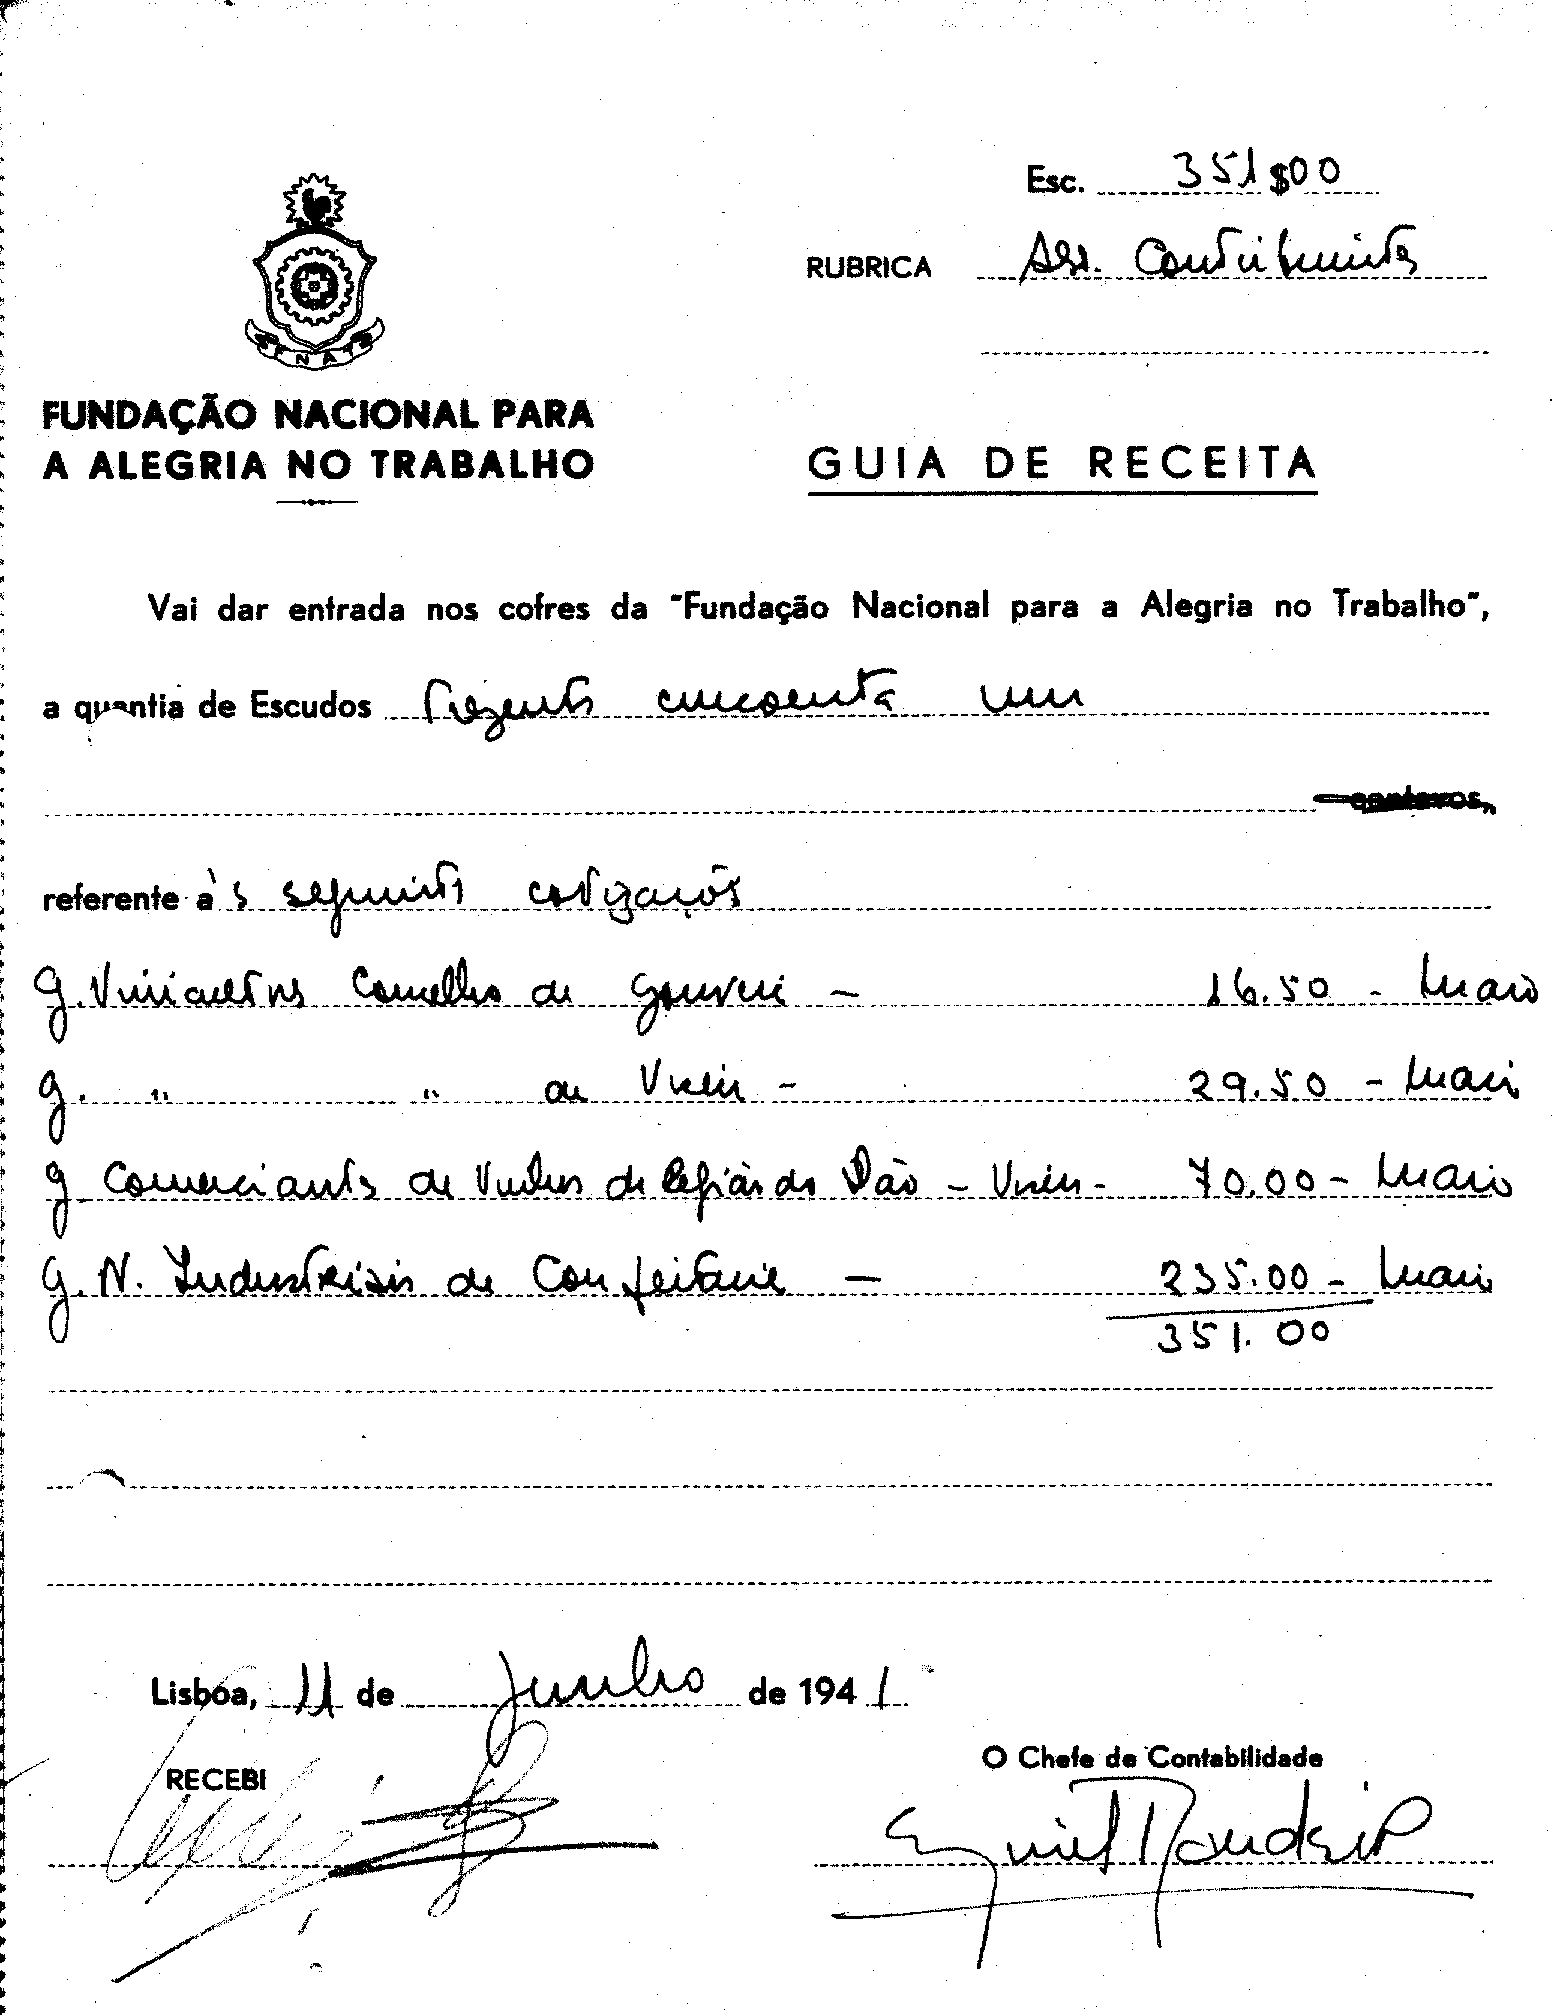 Esc. 351$00
RUBRICA Ass. Contribuintes
FNAT
FUNDAÇÃO NACIONAL PARA
A ALEGRIA NO TRABALHO
GUIA DE RECEITA
Vai dar entrada nos cofres da "Fundação Nacional para a Alegria no Trabalho",
a quantia de Escudos trezentos cincoenta um
centavos,
referente às seguintes cotizações
G. Vinicultores Concelho de Gouveia - 16.50 - Maio
G. " " de Viseu - 29.50 - Maio
G. Comerciantes de Vinhos da Região do Dão - Viseu - 70.00 - Maio
G. N. Industriais de Confeitaria - 235.00 - Maio
351.00
Lisboa, 11 de Junho de 1941
RECEBI
O Chefe de Contabilidade